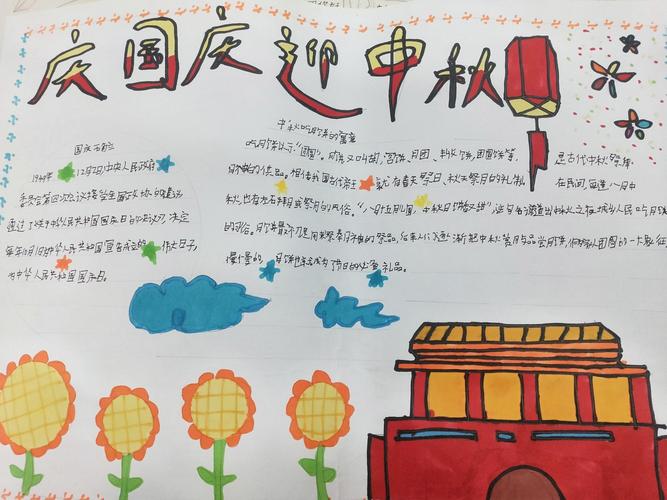 庆国庆迎中秋
国庆节的
1949年12月2日中央人民政府
委员会第四次会议接受全国政协的建议
通过了关于中华人民共和国国庆日的决议,决定
每年10月1日即中华人民共和国宣告成立的伟大日子,
为中华人民共和国国庆日。
中秋吃月饼的寓意
吃月饼以示“团圆”。月饼又叫胡饼、宫饼、月团、丰收饼、团圆饼等,是古代中秋祭拜
月神的供品。相传我国古代帝王就有春天祭日、秋天祭月的礼制。在民间,每逢八月中
秋,也有左右拜月或祭月的风俗。“八月十五月儿圆,中秋月饼香又甜”,这句名谚道出中秋之夜城乡人民吃月饼
的习俗。月饼最初是用来祭奉月神的祭品,后来人们逐渐把中秋赏月与品尝月饼,作为家人团圆的一大象征
慢慢的,月饼也就成为了节日的必备礼品。